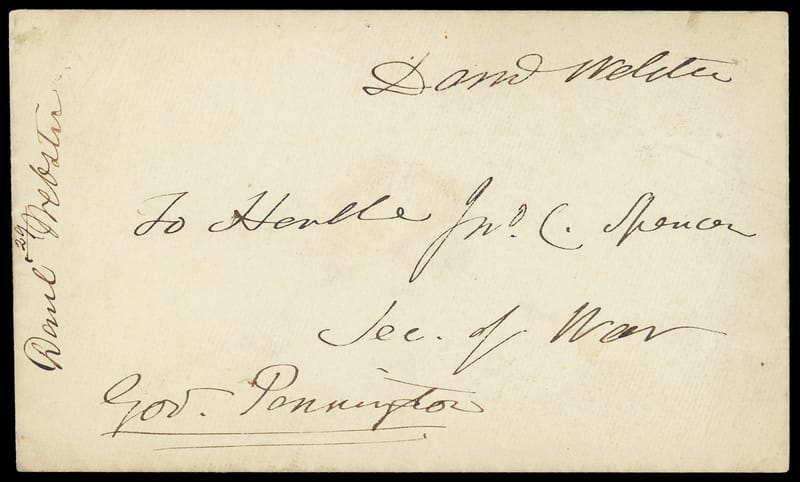 Danl Webster
To Honble Jno. C. Spencer
Sec. of War
Gov. Pennington
Danl Webster
29